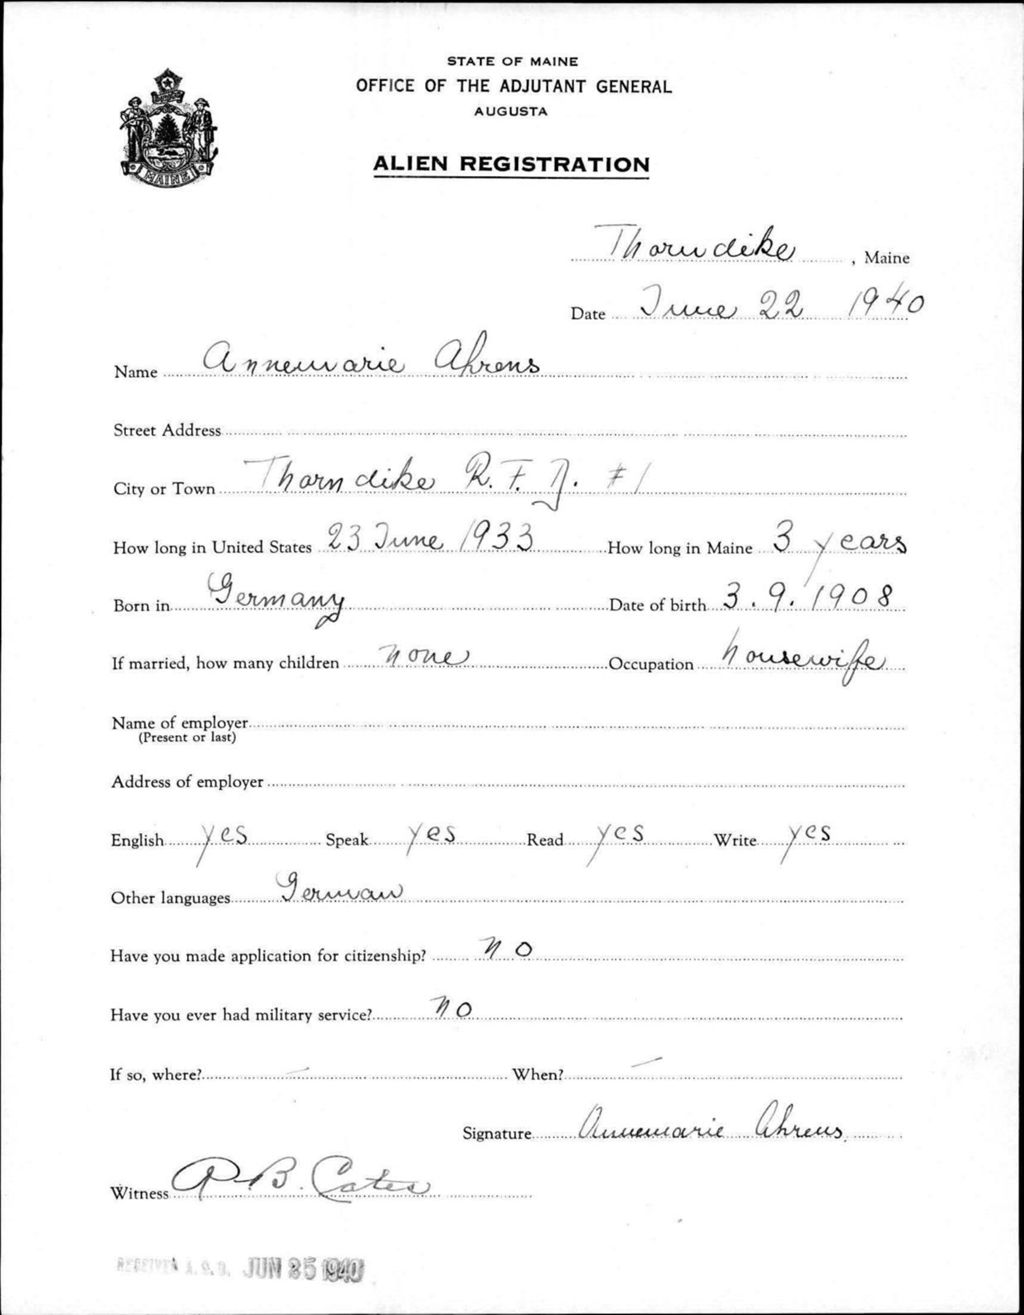 STATE OF MAINE
OFFICE OF THE ADJUTANT GENERAL
AUGUSTA
ALIEN REGISTRATION
MAINE
Thorndike, Maine
Date June 22 1940
Name Annemarie Ahrens
Street Address
City or Town Thorndike R.F.D. #1
How long in United States 23 June 1933 How long in Maine 3 years
Born in Germany Date of birth 3. 9. 1908
If married, how many children none Occupation housewife
Name of employer
(Present or last)
Address of employer
English yes Speak yes Read yes Write yes
Other languages German
Have you made application for citizenship? no
Have you ever had military service? no
If so, where? – When? –
Signature Annemarie Ahrens
Witness R. B. Cates
RECEIVED A.G.O. JUN 25 1940